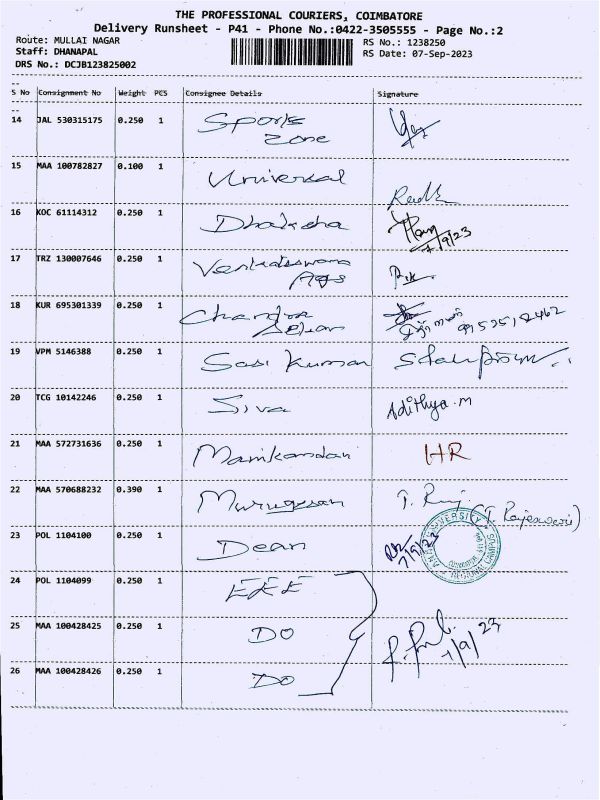 THE PROFESSIONAL COURIERS, COIMBATORE
Delivery Runsheet - P41 - Phone No.:0422-3505555 - Page No.:2
Route: MULLAI NAGAR
RS No.: 1238250
Staff: DHANAPAL
RS Date: 07-Sep-2023
DRS No.: DCJB123825002
S No Consignment No Weight PCS Consignee Details Signature
14 JAL 530315175 0.250 1 Sports Zone
15 MAA 100782827 0.100 1 Universal
16 KOC 61114312 0.250 1 Dhaksha 7/9/23
17 TRZ 130007646 0.250 1 Venkateswara Ags
18 KUR 695301339 0.250 1 Chandra Sekar
19 VPM 5146388 0.250 1 Sasi Kumar
20 TCG 10142246 0.250 1 Siva Adithya.M
21 MAA 572731636 0.250 1 Manikandan HR
22 MAA 570688232 0.390 1 Murugesan (T. Rajeswari)
23 POL 1104100 0.250 1 Dean 7/9/23
UNIVERSITY REGIONAL CAMPUS
24 POL 1104099 0.250 1 EEE
25 MAA 100428425 0.250 1 DO 7/9/23
26 MAA 100428426 0.250 1 DO